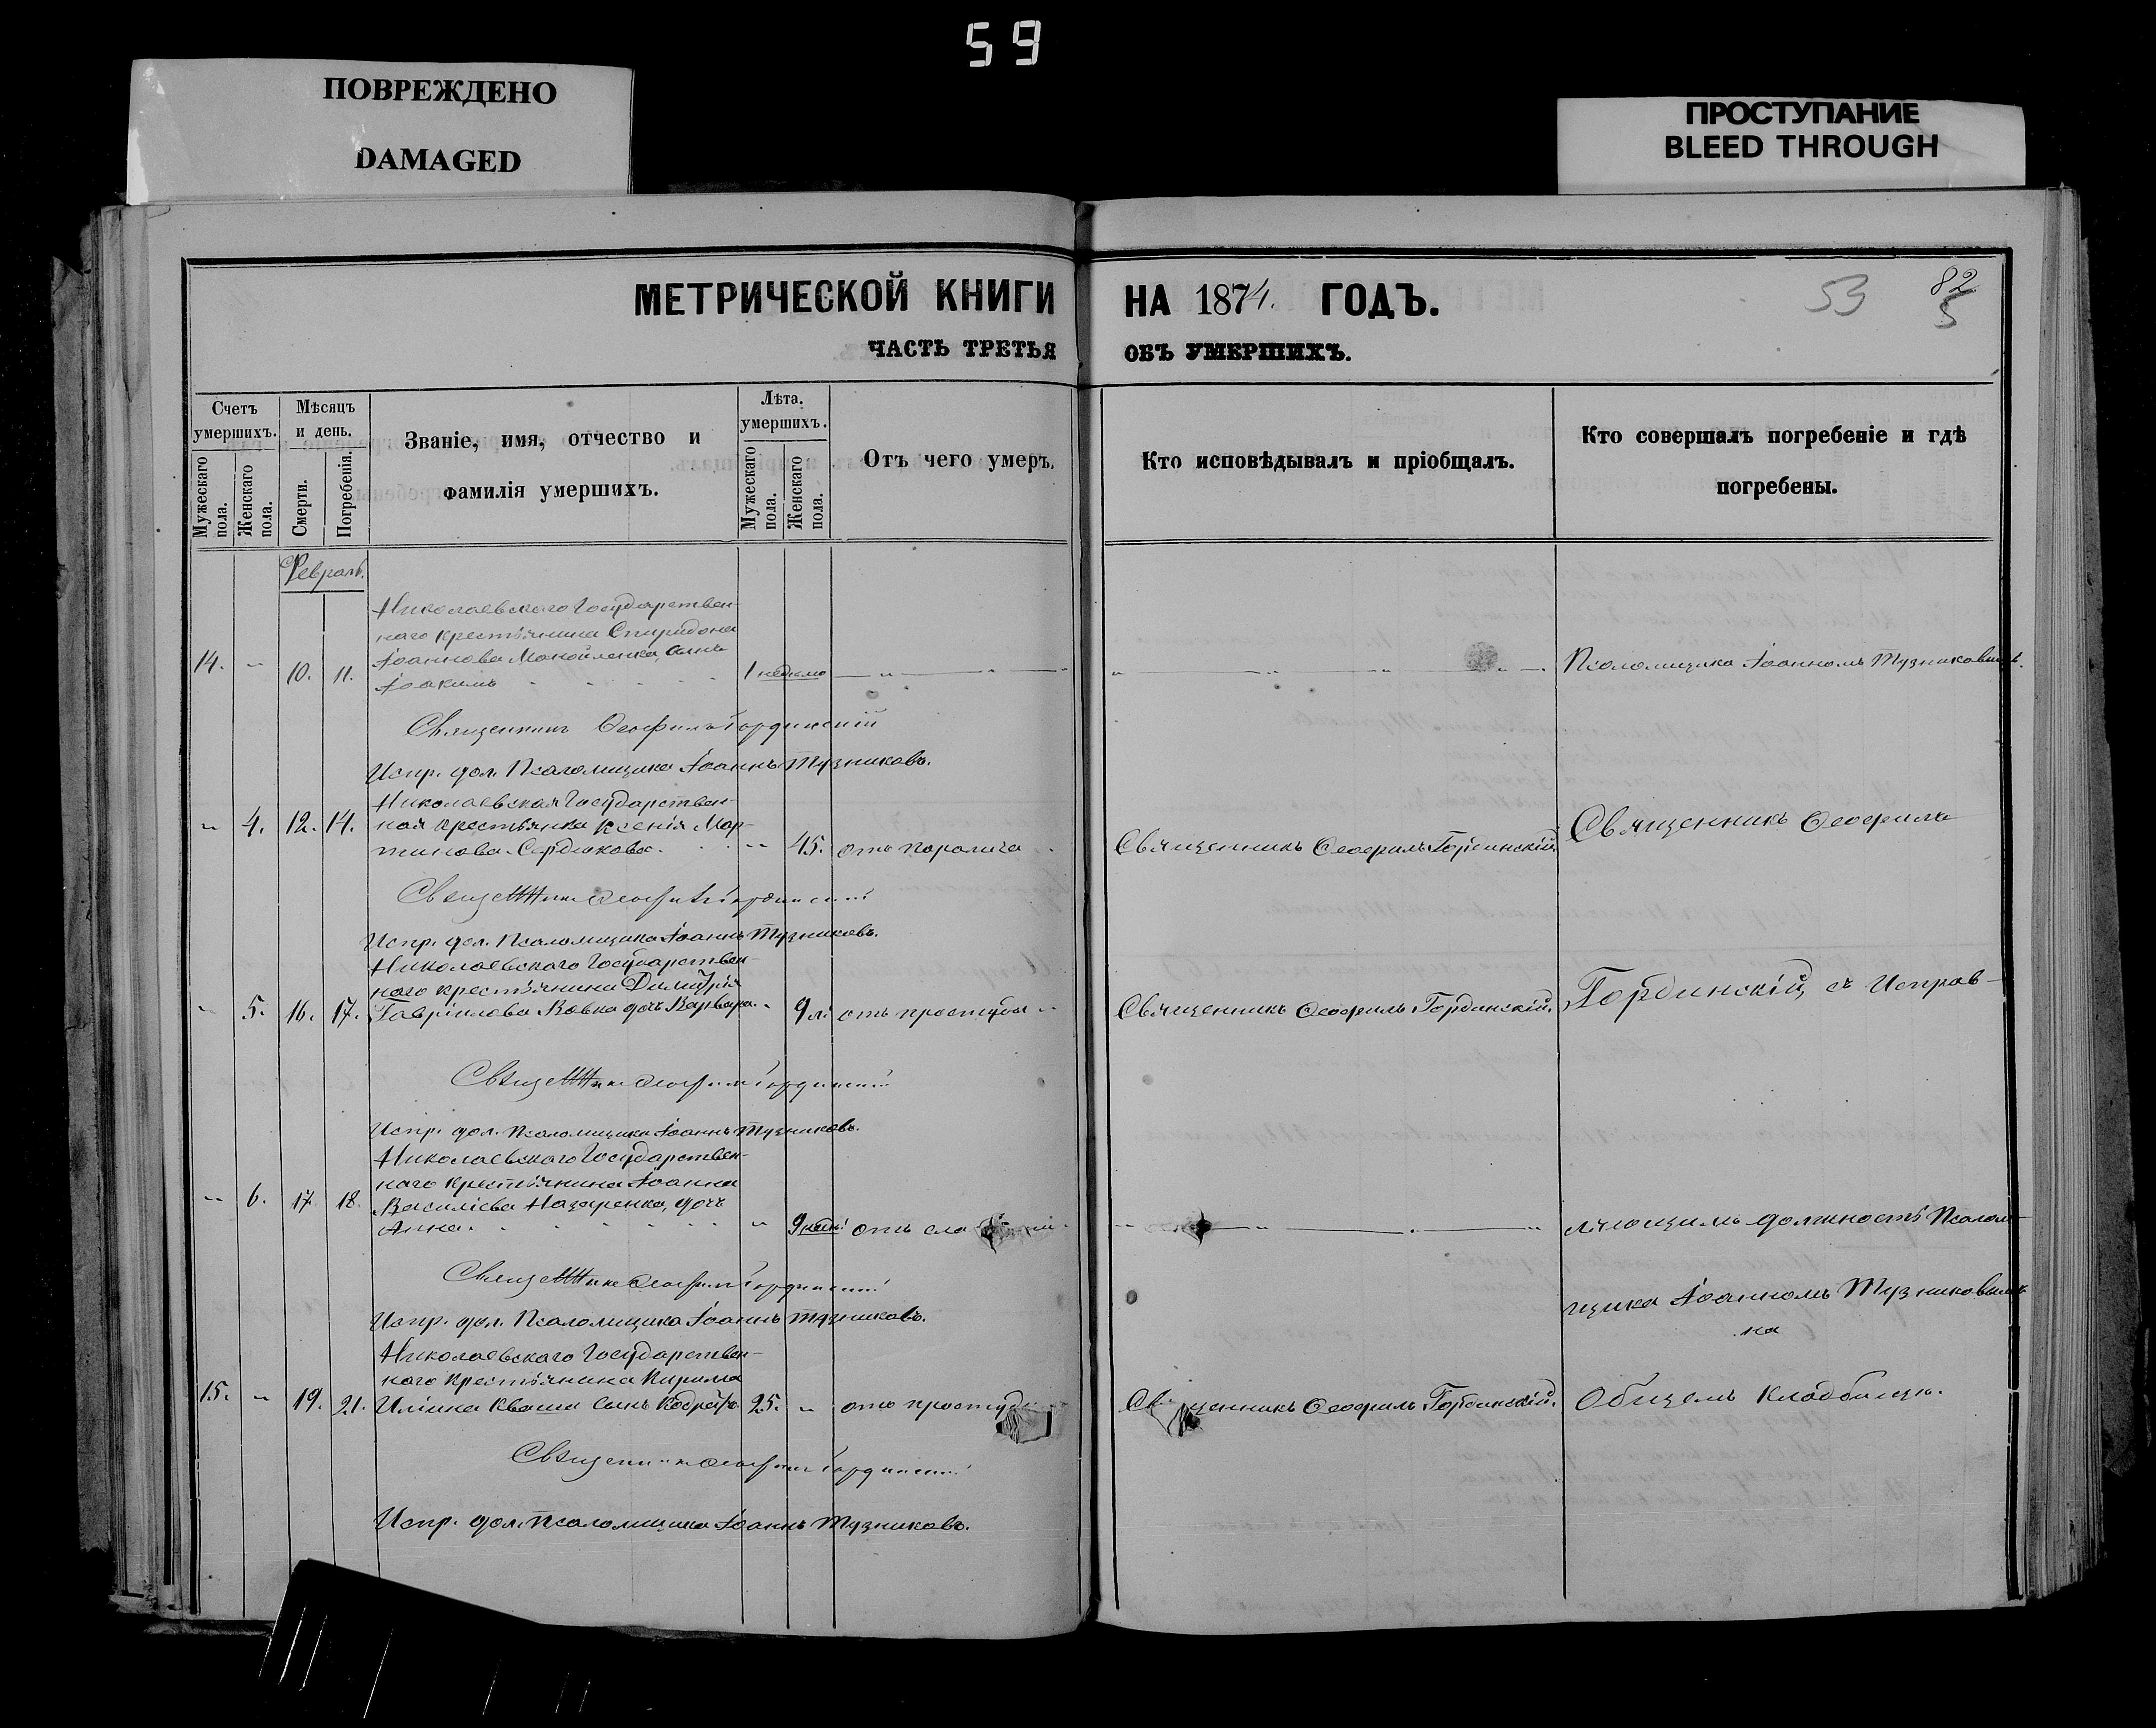 59
ПОВРЕЖДЕНО
DAMAGED
ПРОСТУПАНИЕ
BLEED THROUGH
МЕТРИЧЕСКОЙ КНИГИ НА 1874. ГОДЪ.
53
82
ЧАСТЬ ТРЕТЬЯ ОБЪ УМЕРШИХЪ.
Счетъ умершихъ.
Мужескаго пола.
Женскаго пола.
Мѣсяцъ и день.
Смерти.
Погребенія.
Званіе, имя, отчество и
фамилія умершихъ.
Лѣта.
умершихъ.
Мужескаго пола.
Женскаго пола.
Отъ чего умеръ.
Кто исповѣдывалъ и пріобщалъ.
Кто совершалъ погребеніе и гдѣ
погребены.
Февраль.
Николаевскаго Государствен-
наго крестьянина Спиридона
14. 10. 11. Іоаннова сынъ
Іоакимъ 1 недѣля Псаломщика Іоанномъ Тузниковымъ.
Священникъ Ѳеофилъ Гординскій
Испр. дол. Псаломщика Іоаннъ Тузниковъ.
Николаевская Государствен-
4. 12. 14. ная крестьянка Ксенія Мар-
тинова Сердюкова. 45. отъ паралича Священникъ Ѳеофилъ Гординскій. Священникъ Ѳеофилъ
Священникъ Ѳеофилъ Гординскій
Испр. дол. Псаломщика Іоаннъ Тузниковъ.
Николаевскаго Государствен-
наго крестьянина Димитрія
5. 16. 17. Гавріилова Вовка дочь Варвара 9 л. отъ простуды Священникъ Ѳеофилъ Гординскій. Гординскій, съ Исправ-
Священникъ Ѳеофилъ Гординскій
Испр. дол. Псаломщика Іоаннъ Тузниковъ.
Николаевскаго Государствен-
наго крестьянина Іоанна
6. 17. 18. Василіева Назаренка, дочь
Анна. 9 отъ сла ляющимъ должность Псалом-
Священникъ Ѳеофилъ Гординскій
щика Іоанномъ Тузниковымъ
Испр. дол. Псаломщика Іоаннъ Тузниковъ.
на
Николаевскаго Государствен-
наго крестьянина Кирилла
15. 19. 21. Иліина Кваши сынъ 25. отъ простуды Священникъ Ѳеофилъ Гординскій. Общемъ Кладбищѣ.
Священникъ Ѳеофилъ Гординскій
Испр. дол. Псаломщика Іоаннъ Тузниковъ.